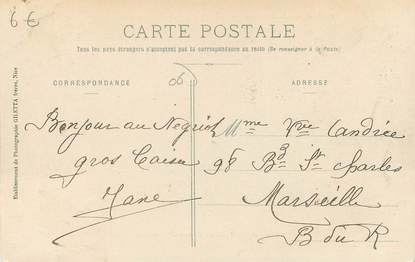 6€
CARTE POSTALE
Tous les pays étrangers n'acceptent pas la correspondance au recto (Se renseigner à la Poste)
CORRESPONDANCE
06
ADRESSE
Etablissement de Photographie GILETTA frères, Nice
Bonjour au
gros
Jane
Mme Vve
98 Bd St Charles
Marseille
B du R